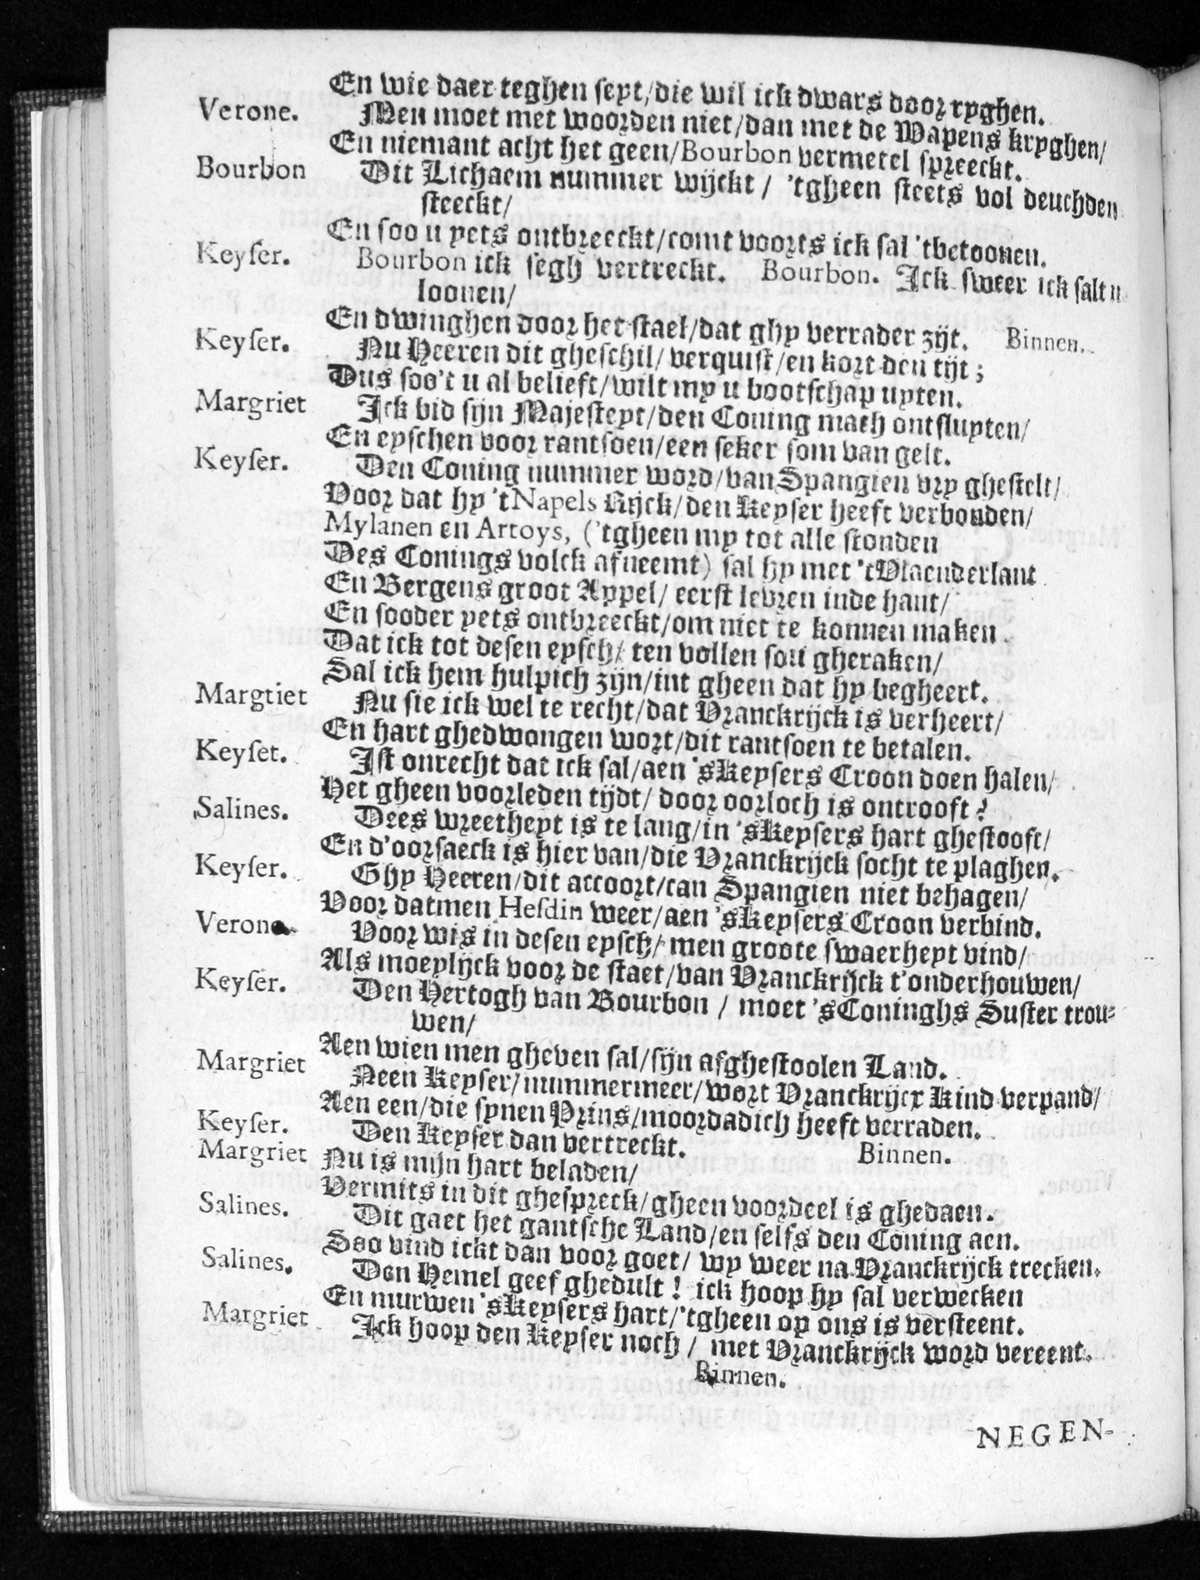 En wie daer teghen seyt/die wil ick dwars door ryghen.
Verone. Men moet met woorden niet/dan met de Wapens kryghen/
En niemant acht het geen/Bourbon vermetel spreeckt.
Bourbon Dit Lichaem nummer wijckt / 'tgheen steets vol deuchden
steeckt/
En soo u yets ontbreeckt/comt voorts ick sal 'tbetoonen.
Keyser. Bourbon ick segh vertreckt. Bourbon. Ick sweer ick salt u
loonen/
En dwinghen door het stael/dat ghy verrader zijt. Binnen.
Keyser. Nu Heeren dit gheschil/ verquist/en kort den tijt;
Dus soo't u al belieft/wilt my u bootschap uyten.
Margriet Ick bid sijn Majesteyt/den Coning mach ontsluyten/
En eyschen voor rantsoen/een seker som van gelt.
Keyser. Den Coning nummer word/van Spangien vry ghestelt/
Voor dat hy 't Napels Rijck/den Keyser heeft verbonden/
Mylanen en Artoys, ('tgheen my tot alle stonden
Des Conings volck afneemt) sal hy met 'tVlaenderlant
En Bergens groot Appel/ eerst levren inde hant/
En sooder yets ontbreeckt/om niet te konnen maken
Dat ick tot desen eysch/ ten vollen sou gheraken/
Sal ick hem hulpich zijn/int gheen dat hy begheert.
Margtiet Nu sie ick wel te recht/dat Vranckrijck is verheert/
En hart ghedwongen wort/dit rantsoen te betalen.
Keyset. Ist onrecht dat ick sal/aen 'sKeysers Croon doen halen/
Het gheen voorleden tijdt/ door oorloch is ontrooft?
Salines. Dees wreetheyt is te lang/in 'sKeysers hart ghestooft/
En d'oorsaeck is hier van/die Vranckrijck socht te plaghen.
Keyser. Ghy Heeren/dit accoort/can Spangien niet behagen/
Voor datmen Hesdin weer/aen 'sKeysers Croon verbind.
Verone. Voor wis in desen eysch/ men groote swaerheyt vind/
Als moeylijck voor de staet/van Vranckrijck t'onderhouwen/
Keyser. Den Hertogh van Bourbon / moet 'sConinghs Suster trou-
wen/
Aen wien men gheven sal/sijn afghestoolen Land.
Margriet Neen Keyser/nummermeer/wort Vranckrijcx Kind verpand/
Aen een/die synen Prins/moordadich heeft verraden.
Keyser. Den Keyser dan vertreckt. Binnen.
Margriet Nu is mijn hart beladen/
Vermits in dit ghespreck/gheen voordeel is ghedaen.
Salines. Dit gaet het gantsche Land/en selfs den Coning aen.
Soo vind ickt dan voor goet/ wy weer na Vranckrijck trecken.
Salines. Den Hemel geef ghedult! ick hoop hy sal verwecken
En murwen 'sKeysers hart/'tgheen op ons is versteent.
Margriet Ick hoop den Keyser noch / met Vranckrijck word vereent.
Binnen.
NEGEN-